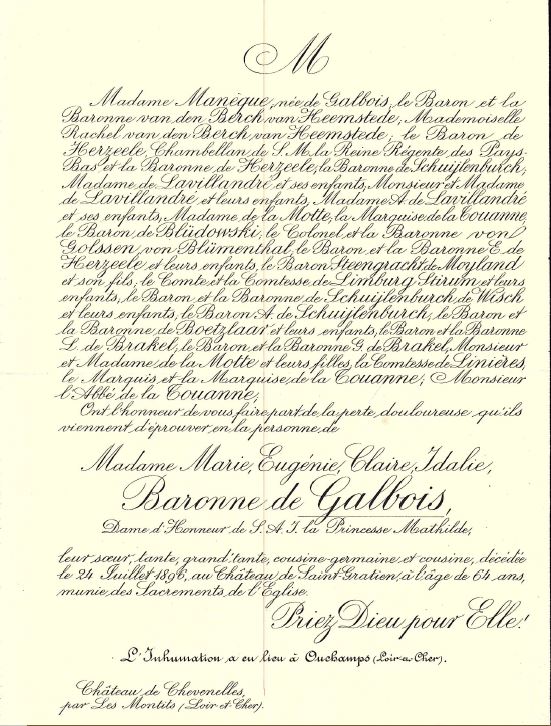 M
Madame Manèque, née de Galbois, le Baron et la
Baronne van den Berch van Heemstede, Mademoiselle
Rachel van den Berch van Heemstede, le Baron de
Herzeele, Chambellan de S. M. la Reine Régente des Pays-
Bas et la Baronne de Herzeele, la Baronne de Schuijlenburch,
Madame de Lavillandré et ses enfants, Monsieur et Madame
de Lavillandré et leurs enfants, Madame A. de Lavillandré
et ses enfants, Madame de la Motte, la Marquise de la Touanne,
le Baron de Blüdowski, le Colonel et la Baronne von
Golssen von Blümenthal, le Baron et la Baronne E. de
Herzeele et leurs enfants, le Baron Steengracht de Moyland
et son fils, le Comte et la Comtesse de Limburg Stirum et leurs
enfants, le Baron et la Baronne de Schuijlenburch de Wisch
et leurs enfants, le Baron A. de Schuijlenburch, le Baron et
la Baronne de Boetzlaar et leurs enfants, le Baron et la Baronne
L. de Brakel, le Baron et la Baronne G. de Brakel, Monsieur
et Madame de la Motte et leurs filles, la Comtesse de Linières,
le Marquis et la Marquise de la Touanne, Monsieur
l'Abbé de la Touanne,
Ont l'honneur de vous faire part de la perte douloureuse qu'ils
viennent d'éprouver en la personne de
Madame Marie, Eugénie, Claire, Idalie,
Baronne de Galbois,
Dame d'Honneur de S. A. I. la Princesse Mathilde,
leur sœur, tante, grand'tante, cousine-germaine et cousine, décédée
le 24 Juillet 1896, au Château de Saint-Gratien, à l'âge de 64 ans,
munie des Sacrements de l'Eglise.
Priez Dieu pour Elle!
L'Inhumation a eu lieu à Ouchamps (Loir-et-Cher).
Château de Chevenelles,
par Les Montits (Loir et Cher).